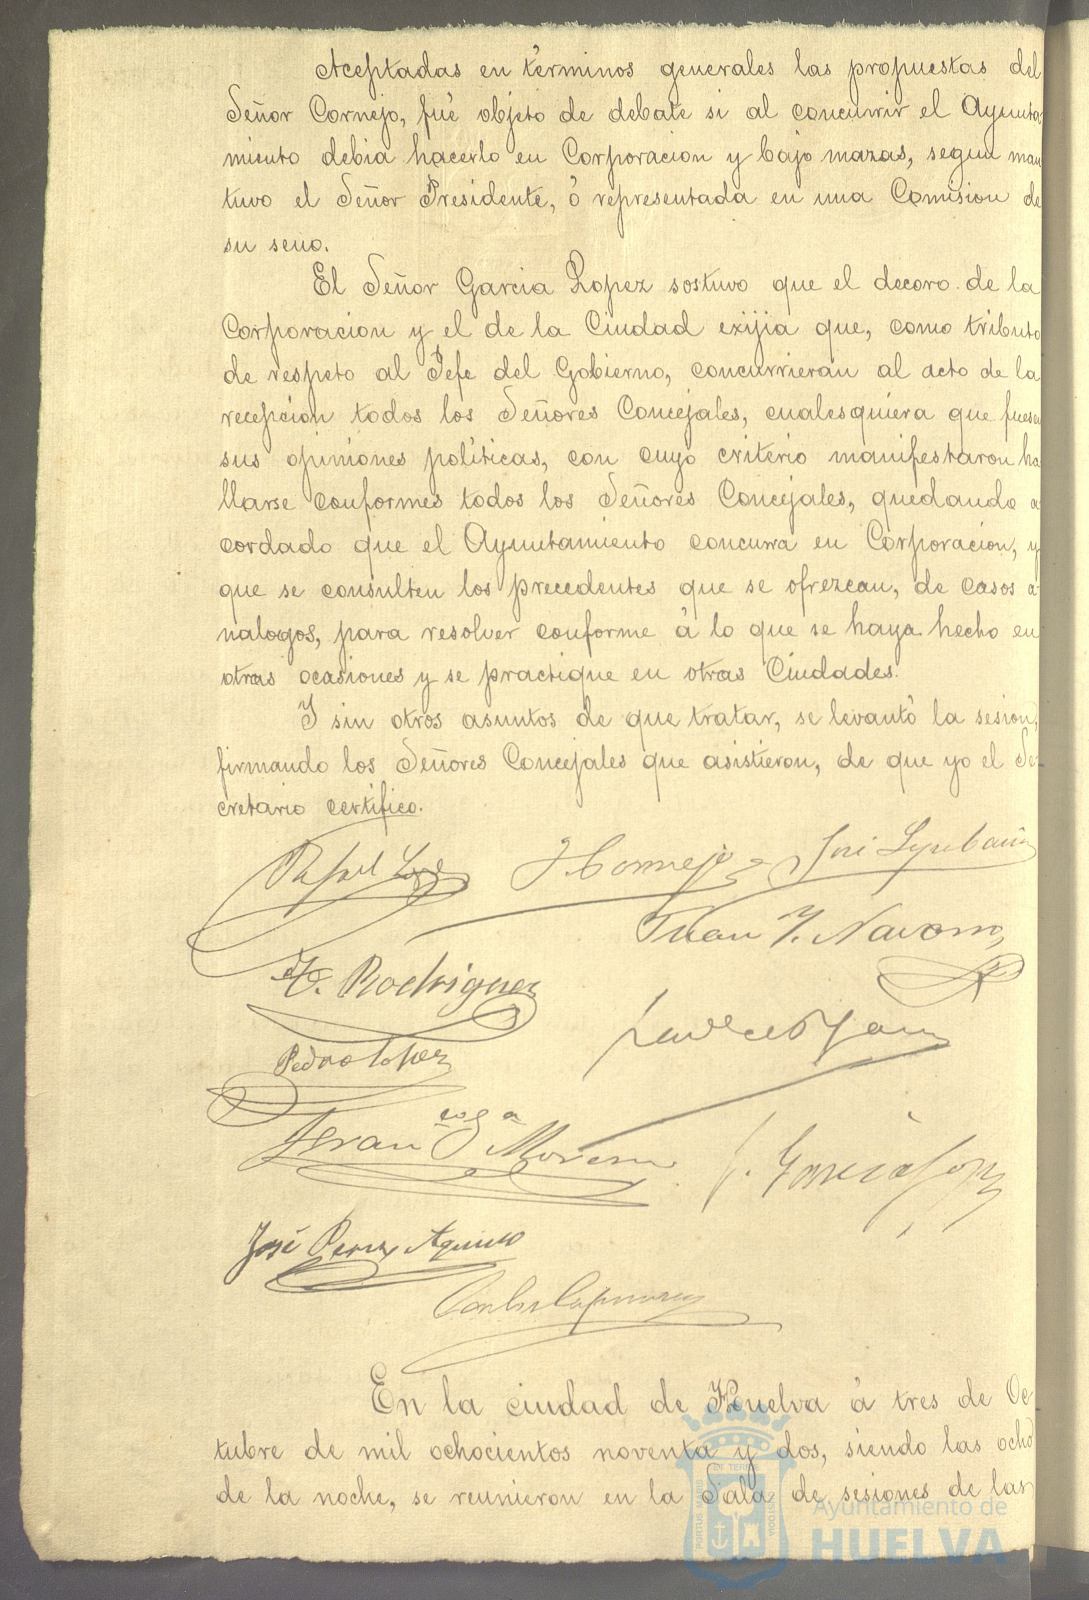 Aceptadas en términos generales las propuestas del
Señor Cornejo, fué objeto de debate si al concurrir el Ayunta-
miento debia hacerlo en Corporacion y bajo mazas, segun man
tuvo el Señor Presidente, ó representada en una Comision de
su seno.
El Señor Garcia Lopez sostuvo que el decoro de la
Corporacion y el de la Ciudad exijia que, como tributo
de respeto al Jefe del Gobierno, concurrieran al acto de la
recepcion todos los Señores Concejales, cualesquiera que fuesen
sus opiniones políticas, con cuyo criterio manifestaron ha
llarse conformes todos los Señores Concejales, quedando a
cordado que el Ayuntamiento concurra en Corporacion, y
que se consulten los precedentes que se ofrezcan, de casos a-
nalogos, para resolver conforme á lo que se haya hecho en
otras ocasiones y se practique en otras Ciudades.
I sin otros asuntos de que tratar, se levantó la sesion,
firmando los Señores Concejales que asistieron, de que yo el Se-
cretario certifico.
Rafael Lopez J. Cornejo José
Juan J. Navarro
F. Rodriguez
Pedro Lopez
Fran co Ga Moreno
J. Garcia Lopez
José Perez Aquino
En la ciudad de Huelva á tres de Oc-
tubre de mil ochocientos noventa y dos, siendo las ocho
de la noche, se reunieron en la Sala de sesiones de las
PORTUS MARIS
ET TERRE
CUSTODIA
Ayuntamiento de
HUELVA